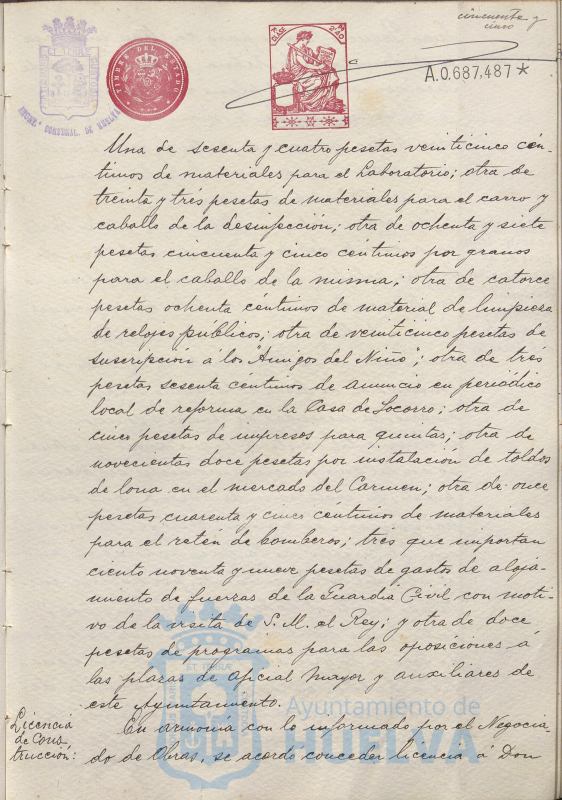 cincuenta y
cinco
A.0.687.487*
TIMBRE DEL ESTADO
CLASE
Una de sesenta y cuatro pesetas veinticinco cén-
timos de materiales para el Laboratorio; otra de
treinta y trés pesetas de materiales para el carro y
caballo de la desinfección; otra de ochenta y siete
pesetas cincuenta y cinco céntimos por granos
para el caballo de la misma; otra de catorce
pesetas ochenta céntimos de material de limpieza
de relojes publicos; otra de veinticinco pesetas de
suscripcion á los "Amigos del Niño"; otra de trés
pesetas sesenta centimos de anuncio en periódico
local de reforma en la Casa de Socorro; otra de
cinco pesetas de impresos para quintas; otra de
novecientas doce pesetas por instalación de toldos
de lona en el mercado del Carmen; otra de once
pesetas cuarenta y cinco céntimos de materiales
para el retén de bomberos; trés que importan
ciento noventa y nueve pesetas de gastos de aloja-
miento de fuerzas de la Guardia Civil con moti-
vo de la visita de S. M. el Rey; y otra de doce
pesetas de programas para las oposiciones á
las plazas de oficial mayor y auxiliares de
este Ayuntamiento.
Licencia
de Cons
trucción:
En armonía con lo informado por el Negocia-
do de Obras, se acordo conceder licencia á Don
Ayuntamiento de
HUELVA